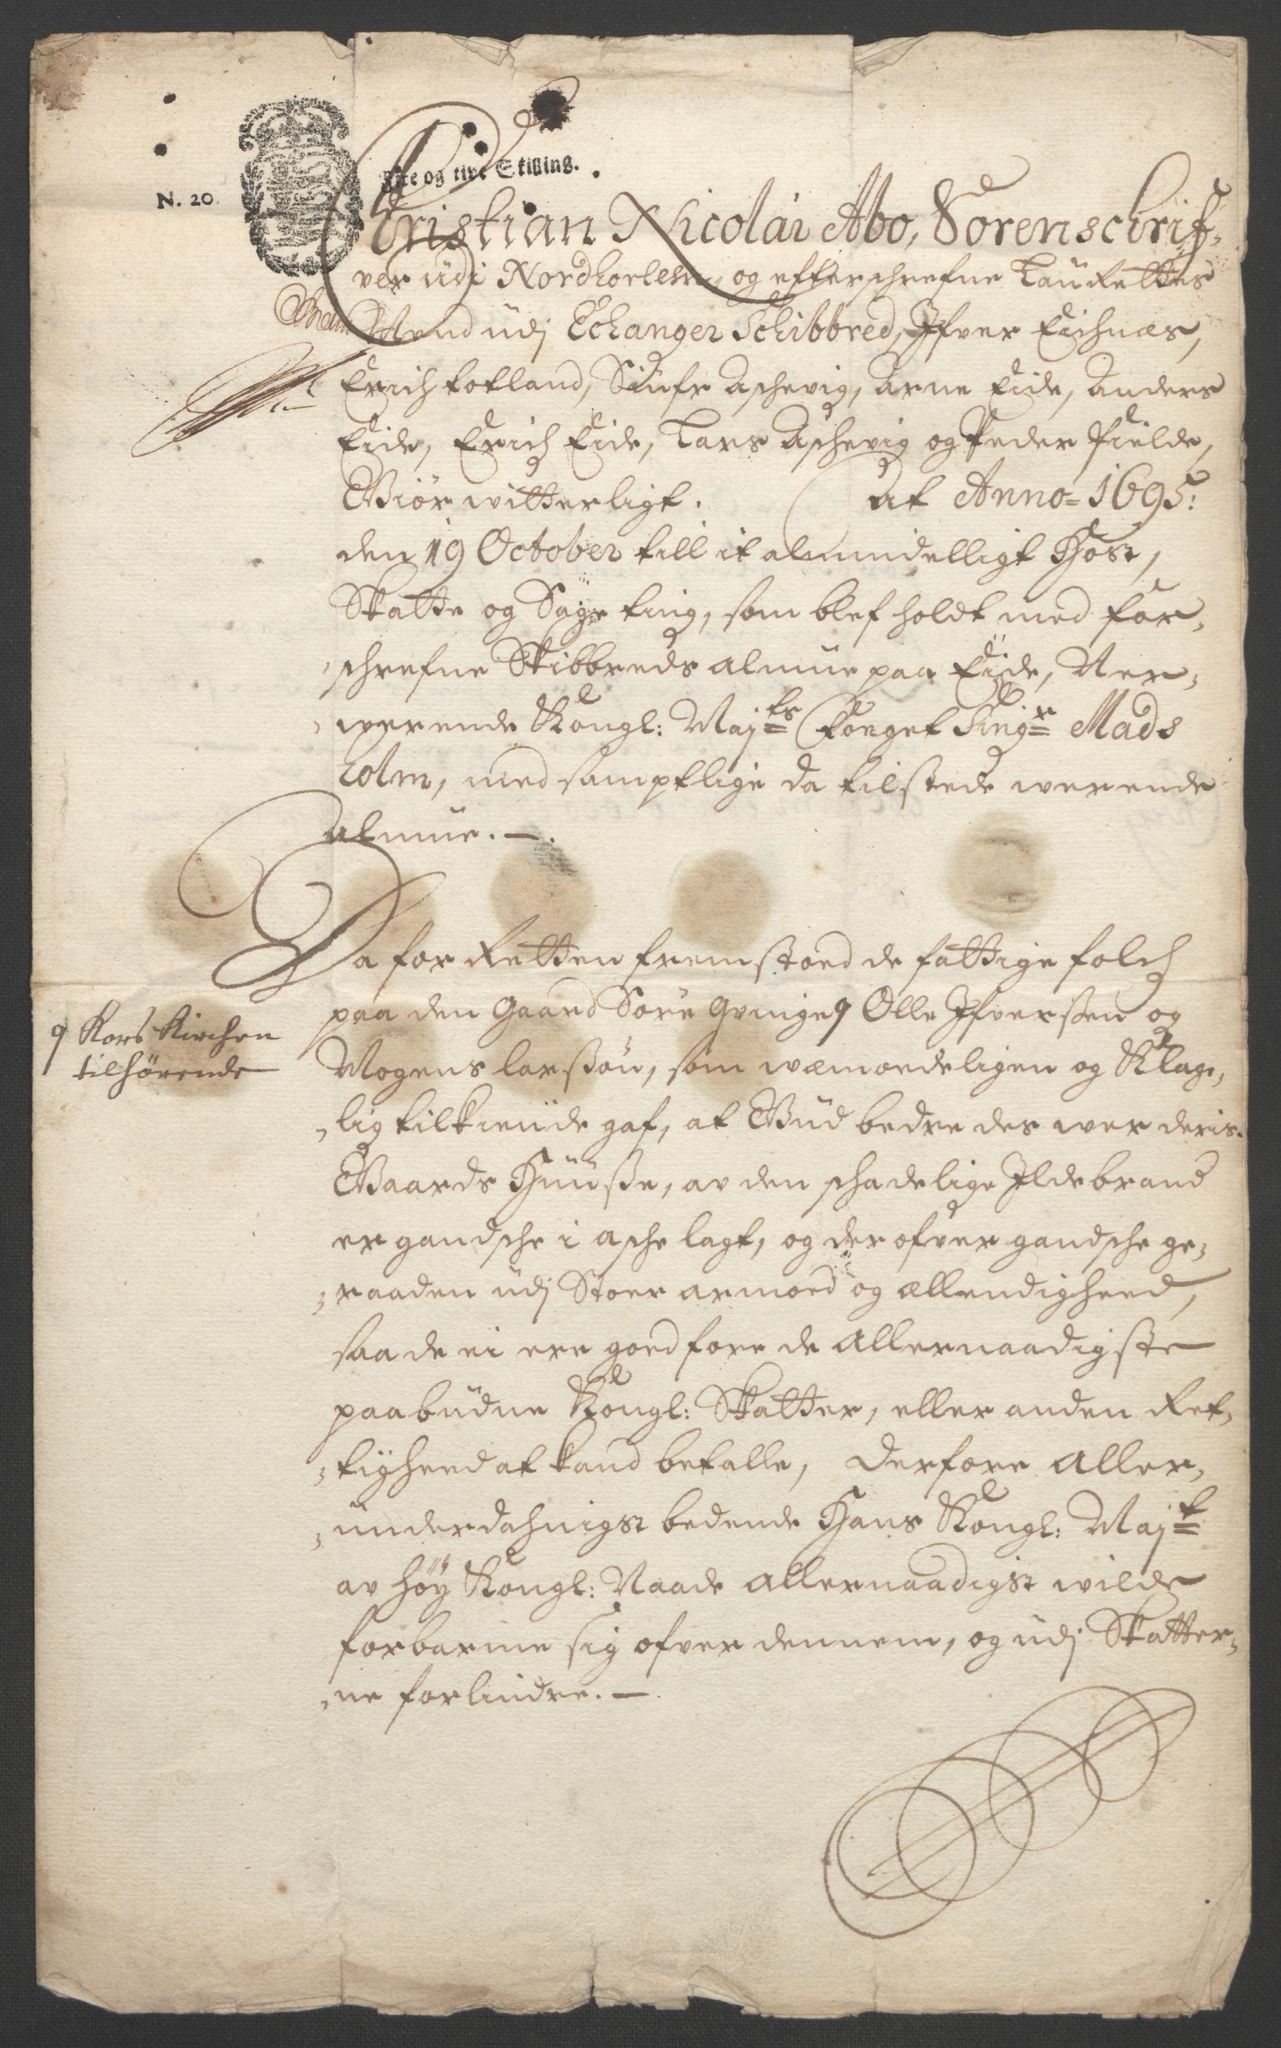 N. 20
Fire og tive Skilling.
Christian Nicolai Abo, Sorenschrif-
ver udi Nordhorlehn, og efterschrefne Laurettes
Mend udj Echanger Schibbred, Ifver Eichnæs,
Erich totland, Siufr Aschevig, Arne Eide, Anders
Eide, Erich Eide, Lars Aschevig og Peder fielde,
Giør witterligt. At Anno= 1695:
den 19 October till it almindelligt Høst,
Skatte og Sage ting, som blef holdt med for-
-schrefne Skibbreds almue paa Eide, Ner-
werende Kongl: Maj:ts Fouget Sing:r Mads
Colm, med samptlige da tilstede werende
almue.
Da for Retten fremstoed de fattige folch
paa den Gaard Søre Quinge 9 Olle Ifversen og
9 Kors Kirchen
tilhørende
Mogens larssøn, som wæmoedeligen og Klage-
-lig tilkiende gaf, at Gud bedre des wer deris
Gaards Huusse, av den schadelige Ildebrand
er gandsche i asche lagt, og der ofver gandsche ge-
-raaden udj Stoer armoed og ællendigheed,
saa de ei ere goed fore de Allernaadigste
paabudne Kongl: Skatter, eller anden Ret-
-tigheed at kand betalle, Derfore Aller-
-underdahnigst bedende Hans Kongl: Maj:t
av høy Kongl: Naade Allernaadigst wilde
forbarme sig ofver dennem, og udj Skatter-
-ne forlindre.